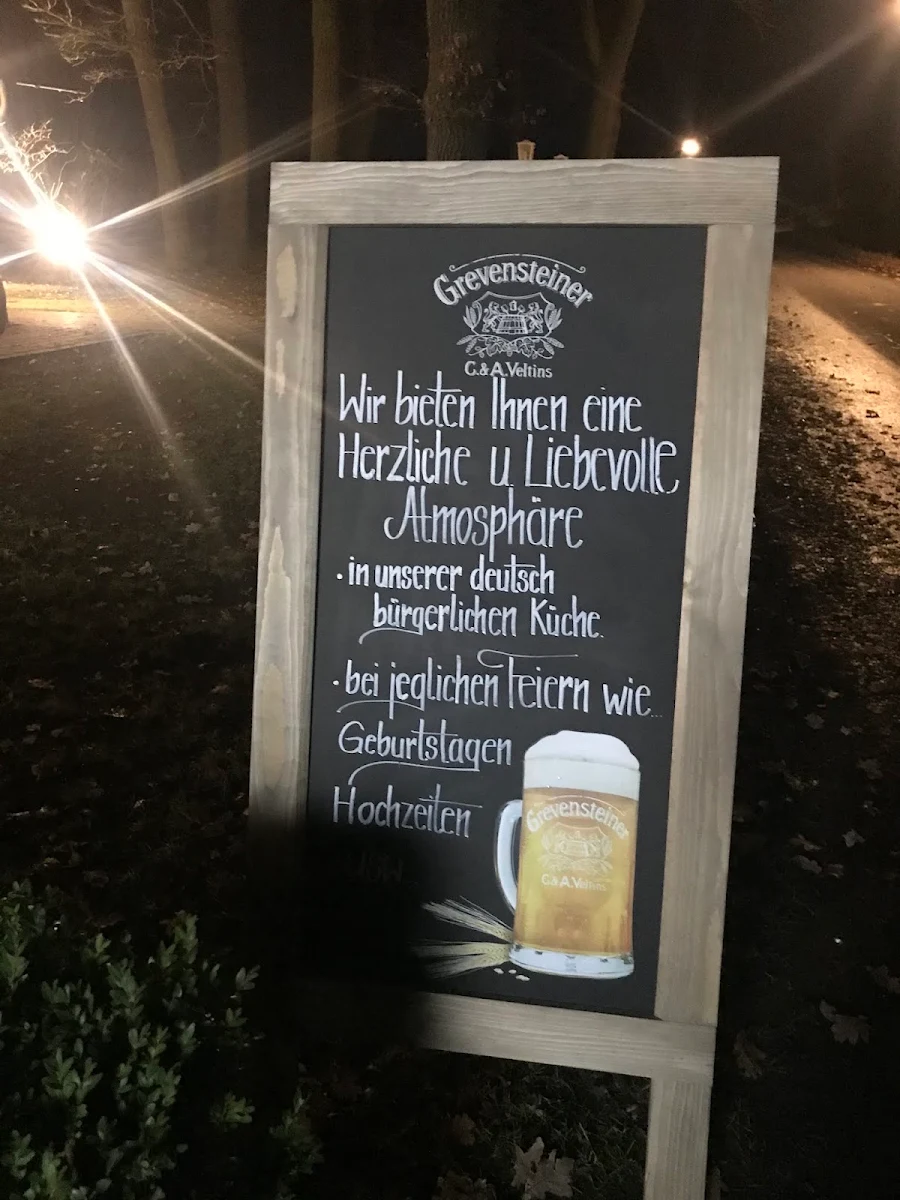 Grevensteiner
C.&A.Veltins
Wir bieten Ihnen eine
Herzliche u. Liebevolle
Atmosphäre
· in unserer deutsch
bürgerlichen Küche.
· bei jeglichen Feiern wie...
Geburtstagen
Hochzeiten
usw.
Grevensteiner
C.&A.Veltins